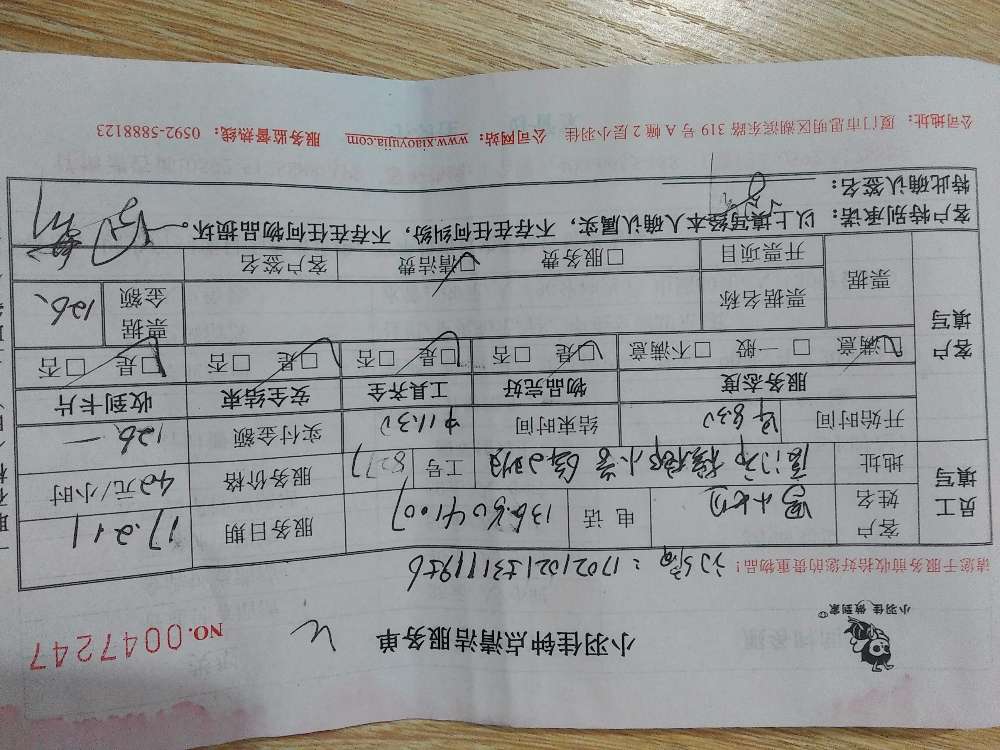 小羽佳 做到家
小羽佳钟点清洁服务单
NO.0047247
请您于服务前收拾好您的贵重物品！
员工填写
客户姓名
电话
服务日期 17.2.11
地址
工号
服务价格 42元/小时
开始时间 早8:30
结束时间 中11:30
实付金额 126
客户填写
服务态度 物品完好 工具齐全 安全结束 收到卡片
□满意 □一般 □不满意 □是 □否 □是 □否 □是 □否 □是 □否
票据
票据名称
票据金额 126
开票项目 □服务费 □清洁费 客户签名
客户特别承诺： 以上填写经本人确认属实，不存在任何纠纷，不存在任何物品损坏。
特此确认签名：
公司地址： 厦门市思明区湖滨东路 319 号 A 幢 2 层小羽佳 公司网站：www.xiaoyujia.com 服务监督热线： 0592-5888123